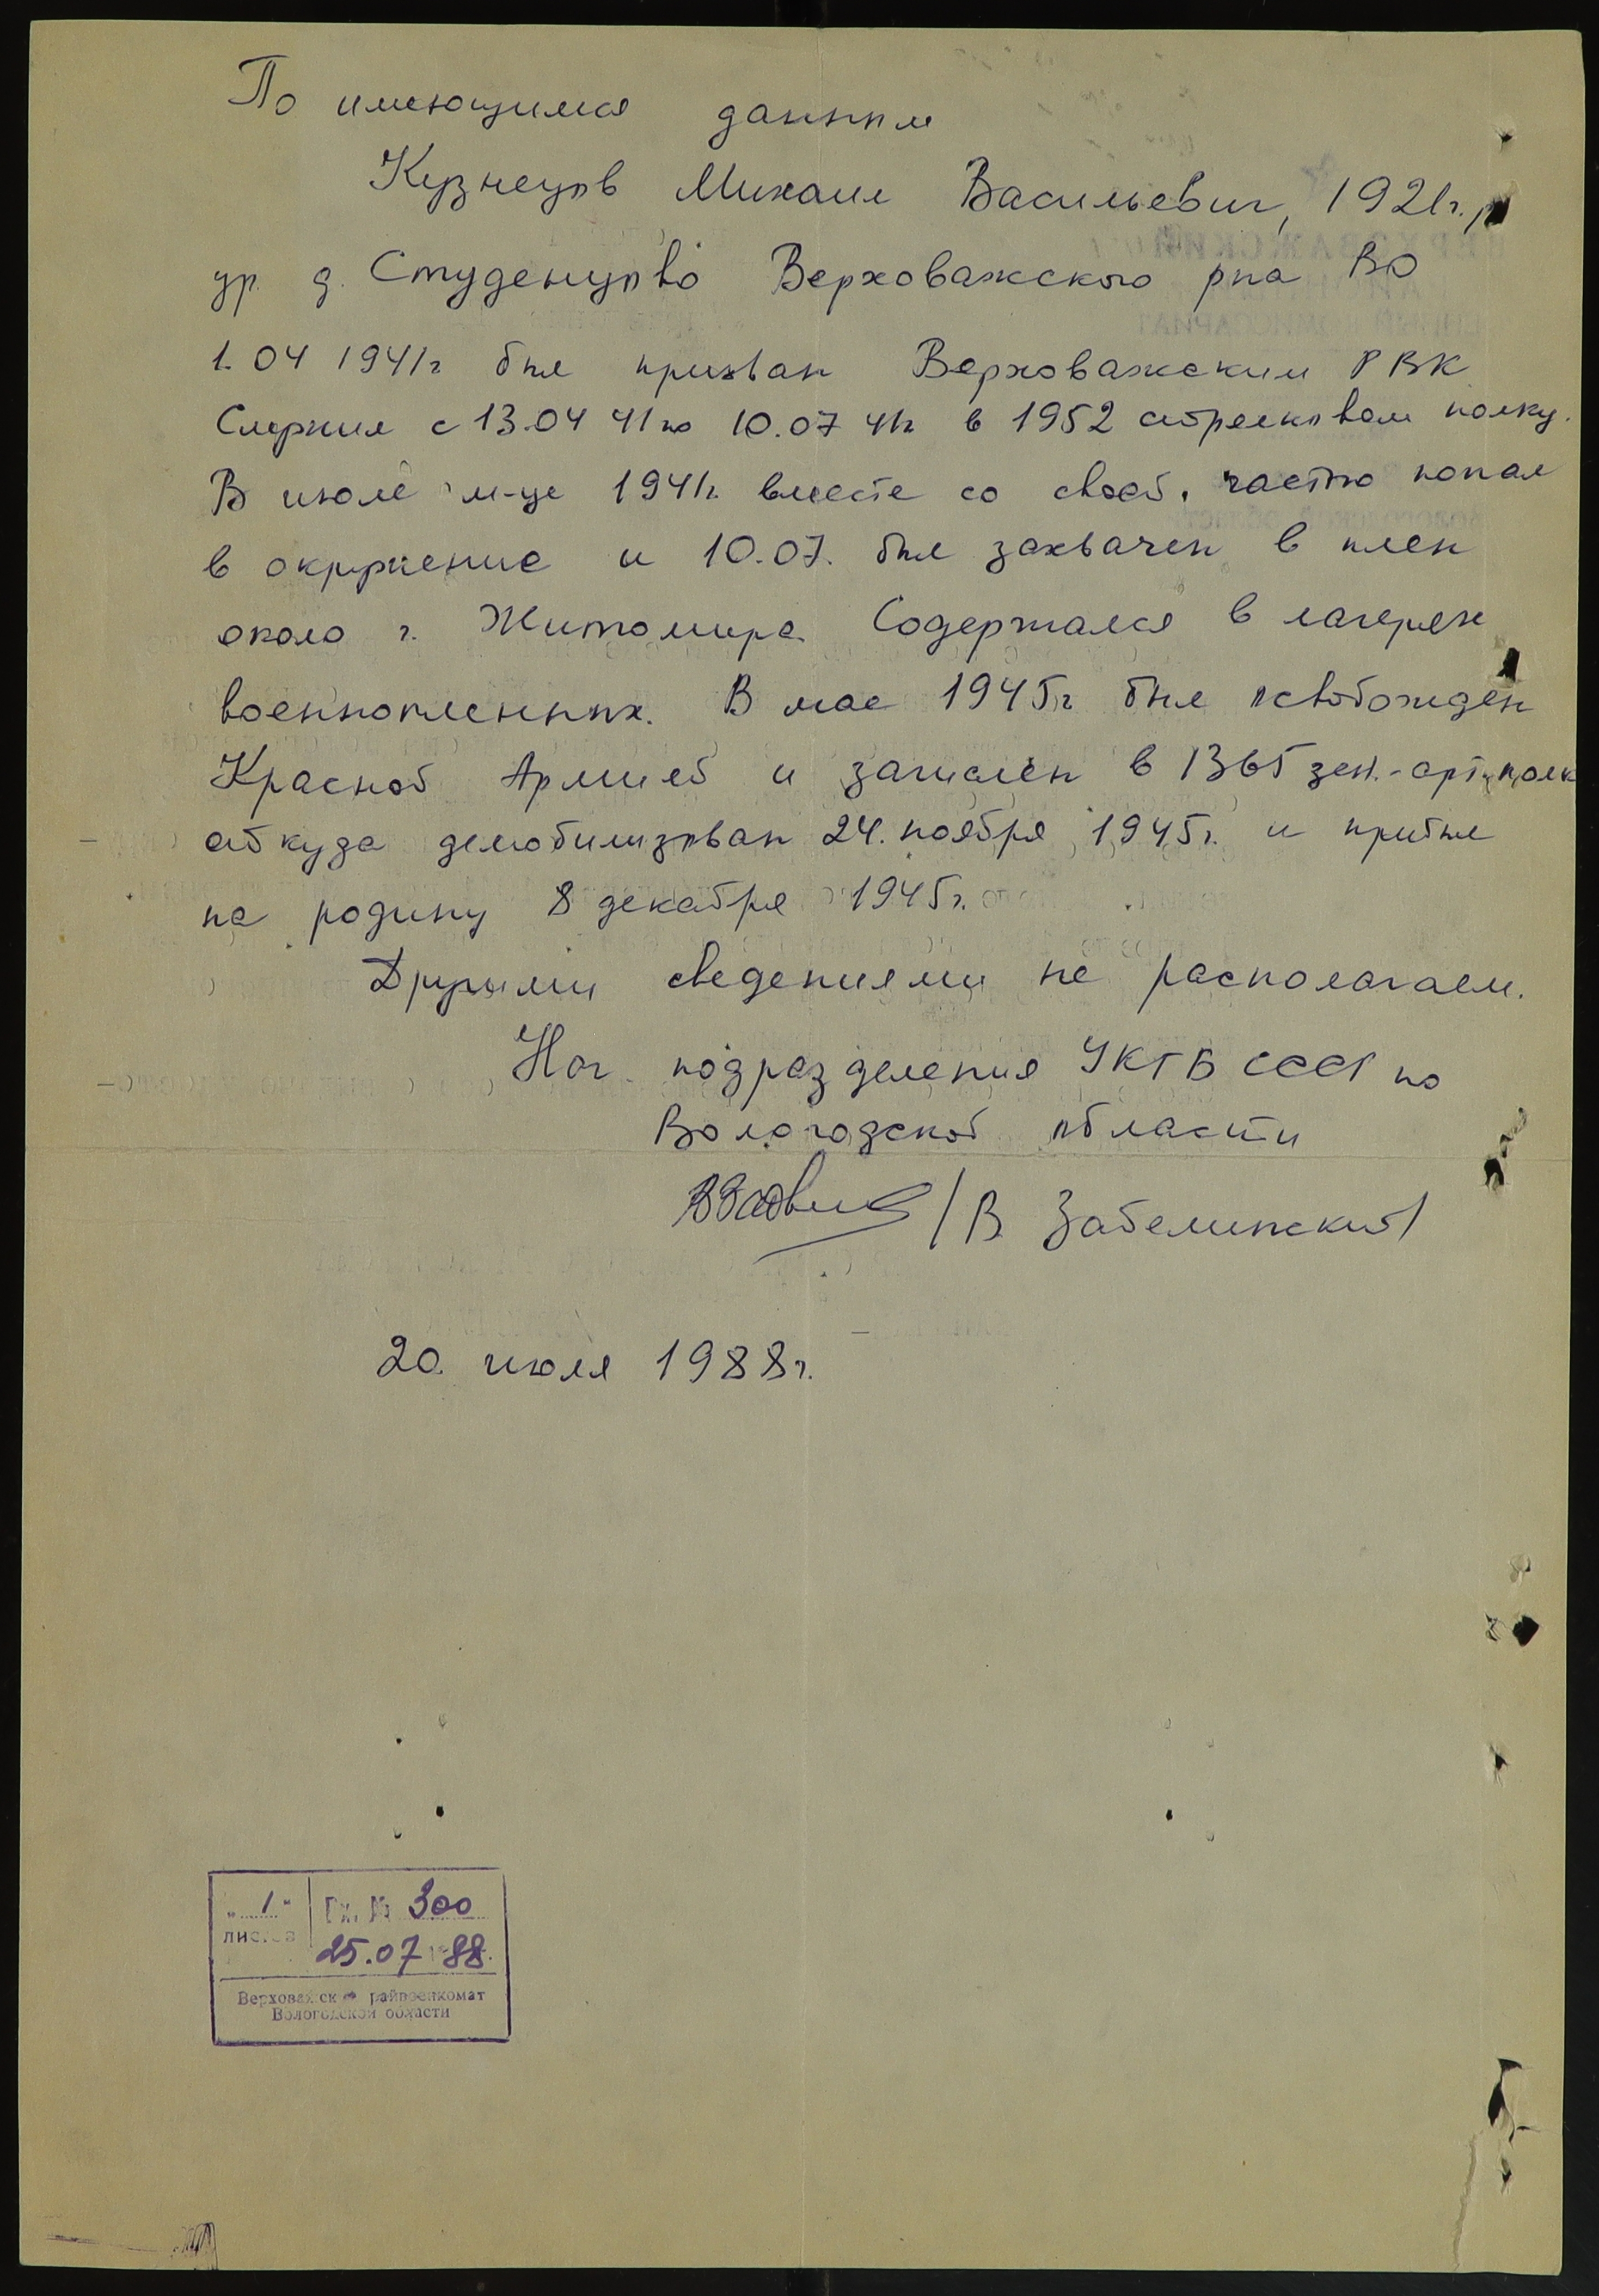 По имеющимся данным
Кузнецов Михаил Васильевич, 1921г.р
ур. д. Студенцово Верховажского р-на ВО
1.04 1941г был призван Верховажским РВК
Служил с 13.04 41 по 10.07 41г в 1952 стрелковом полку.
В июле м-це 1941г. вместе со своей частью попал
в окружение и 10.07. был захвачен в плен
около г. Житомира. Содержался в лагерях
военнопленных. В мае 1945г был освобожден
Красной Армией и зачислен в 1365 зен.-арт. полк
откуда демобилизован 24. ноября 1945г. и прибыл
на родину 8 декабря 1945г.
Другими сведениями не располагаем.
Нач. подразделения УКГБ СССР по
Вологодской области
/В. Забелинский/
20. июля 1988г.
„ 1 " Вх. № 300
листов 25.07 1988.
Верховажский райвоенкомат
Вологодской области